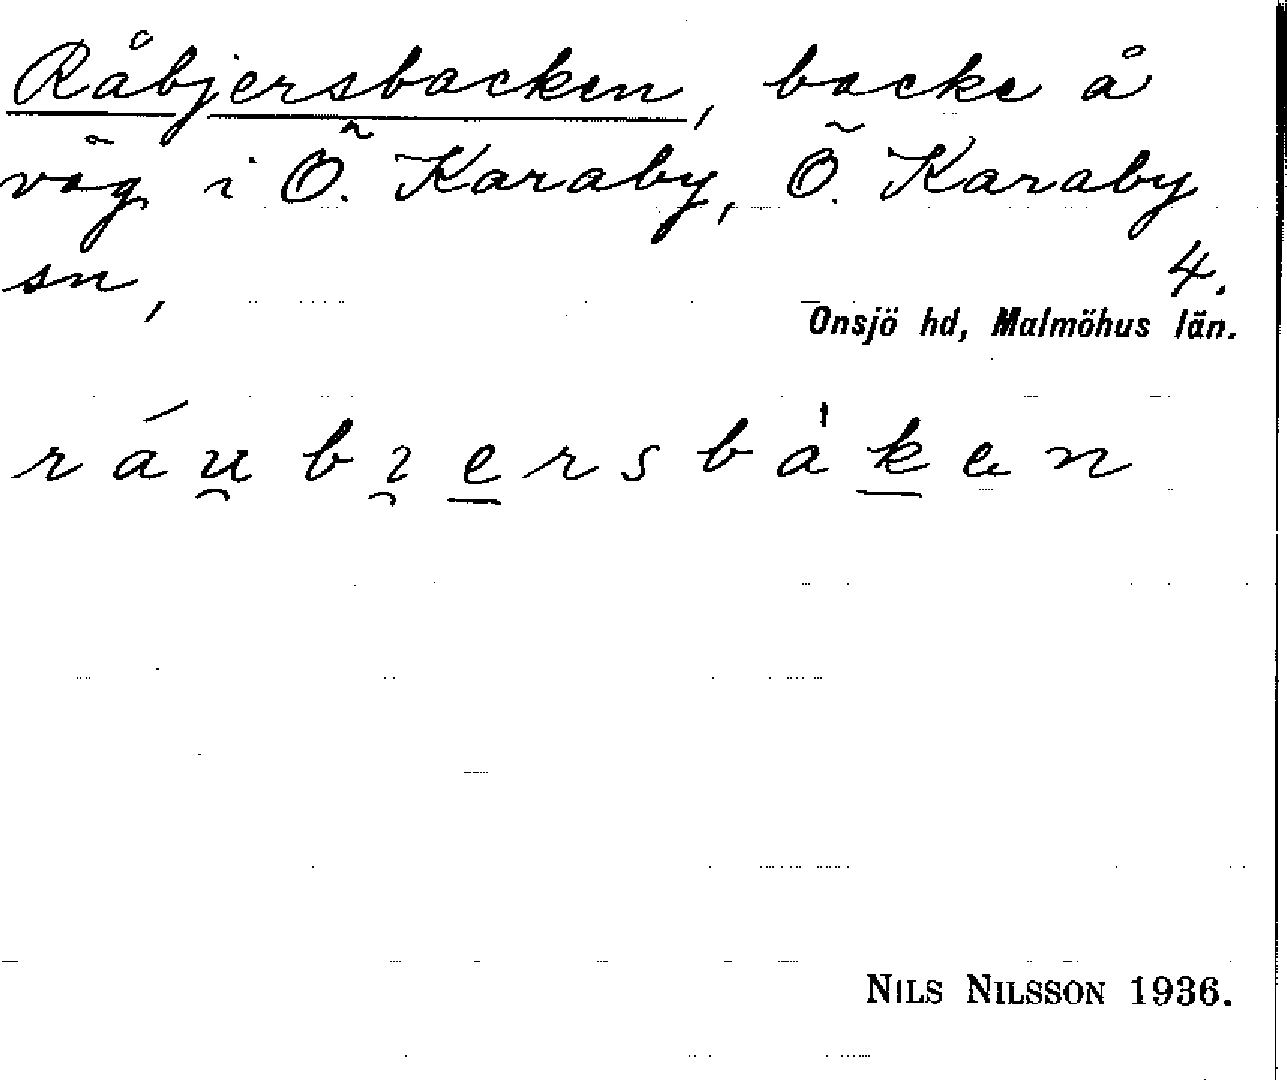 Råbjersbacken, backe å
väg i Ö. Karaby, Ö. Karaby
sn, 4.
Onsjö hd, Malmöhus län.
ráu̯bi̯e̲rsbàk̲en
NILS NILSSON 1936.